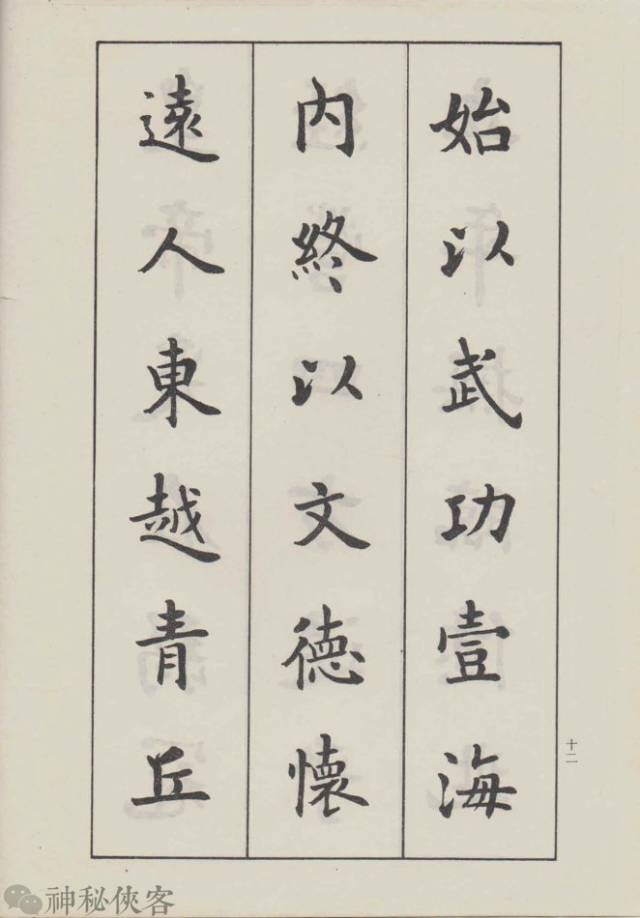 始以武功壹海
内終以文德懷
遠人東越青丘
十二
神秘俠客